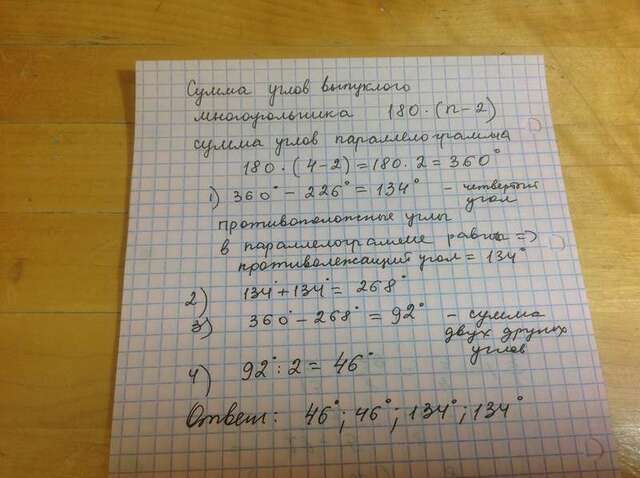 Сумма углов выпуклого
многоугольника 180·(n-2)
сумма углов параллелограмма
180·(4-2)=180·2=360°
1) 360°-226°=134° - четвертый
угол
Противоположные углы
в параллелограмме равны =>
противолежащий угол = 134°
2) 134°+134°=268°
3) 360°-268°=92° - сумма
двух других
углов
4) 92°:2=46°
Ответ: 46°; 46°; 134°; 134°